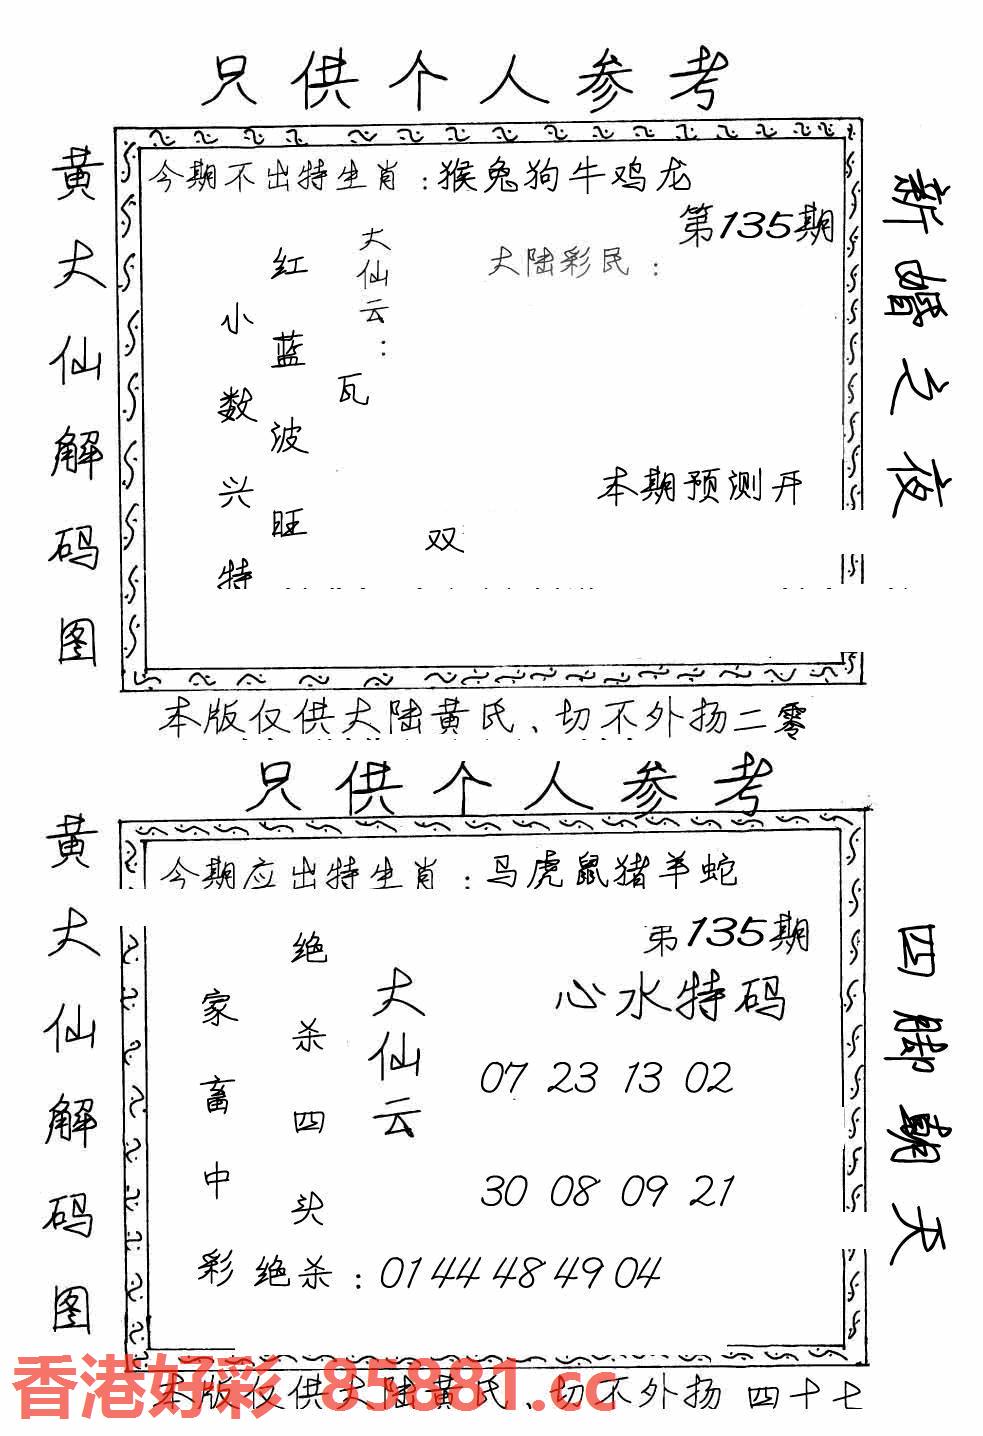 只供个人参考
黄大仙解码图
今期不出特生肖：猴兔狗牛鸡龙
第135期
大陆彩民：
大仙云：
瓦
红蓝波旺
小数兴特
双
本期预测开
新婚之夜
本版仅供大陆黄氏、切不外扬二零
只供个人参考
黄大仙解码图
今期应出特生肖：马虎鼠猪羊蛇
第135期
心水特码
大仙云
绝杀四头
家畜中彩
07 23 13 02
30 08 09 21
绝杀：01 44 48 49 04
四脚朝天
本版仅供大陆黄氏、切不外扬 四十七
香港好彩 85881.cc